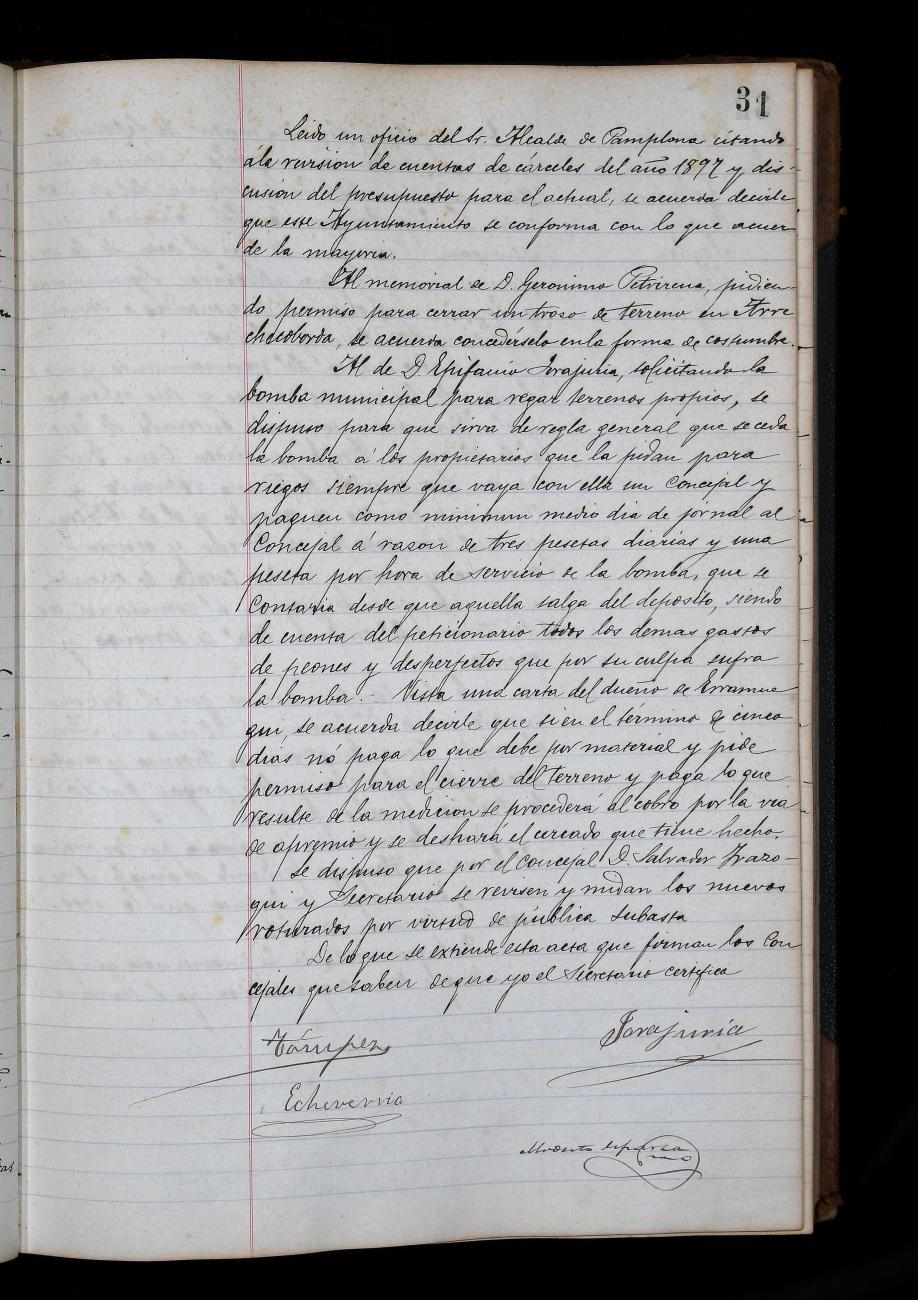 31
Leido un oficio del Sr. Alcalde de Pamplona citando
á la revision de cuentas de cárceles del año 1897 y dis-
cusión del presupuesto para el actual, se acuerda decirle
que este Ayuntamiento se conforma con lo que acuer
de la mayoria.
Al memorial de D. Geronimo Petrirena, pidien-
do permiso para cerrar un troso de terreno en Arre
chucoborda, se acuerda concedérselo en la forma de costumbre.
Al de D Epifanio Jorajuria, solicitando la
bomba municipal para regar terrenos propios, se
dispuso para que sirva de regla general que se ceda
la bomba á los propietarios que la pidan para
riegos siempre que vaya con ella un Concejal y
paguen como minimun medio dia de jornal al
Concejal á rason de tres pesetas diarias y una
peseta por hora de servicio de la bomba, que se
contaria desde que aquella salga del deposito, siendo
de cuenta del peticionario todos los demas gastos
de peones y desperfectos que por su culpa sufra
la bomba. Vista una carta del dueño de Erramue
qui, se acuerda decirle que si en el término de cinco
dias nó paga lo que debe por material y pide
permiso para el cierre del terreno y paga lo que
resulte de la medicion se procederá al cobro por la via
de apremio y se deshará el cercado que tiene hecho.
Se dispuso que por el Concejal D. Salvador Irazo-
qui y Secretario se revisen y midan los nuevos
roturados por virtud de pública subasta
De lo que se extiende esta acta que firman los Con
cejales que saben de que yo el Secretario certifico
Jorajuria
Echeverria
Modesto Esparza